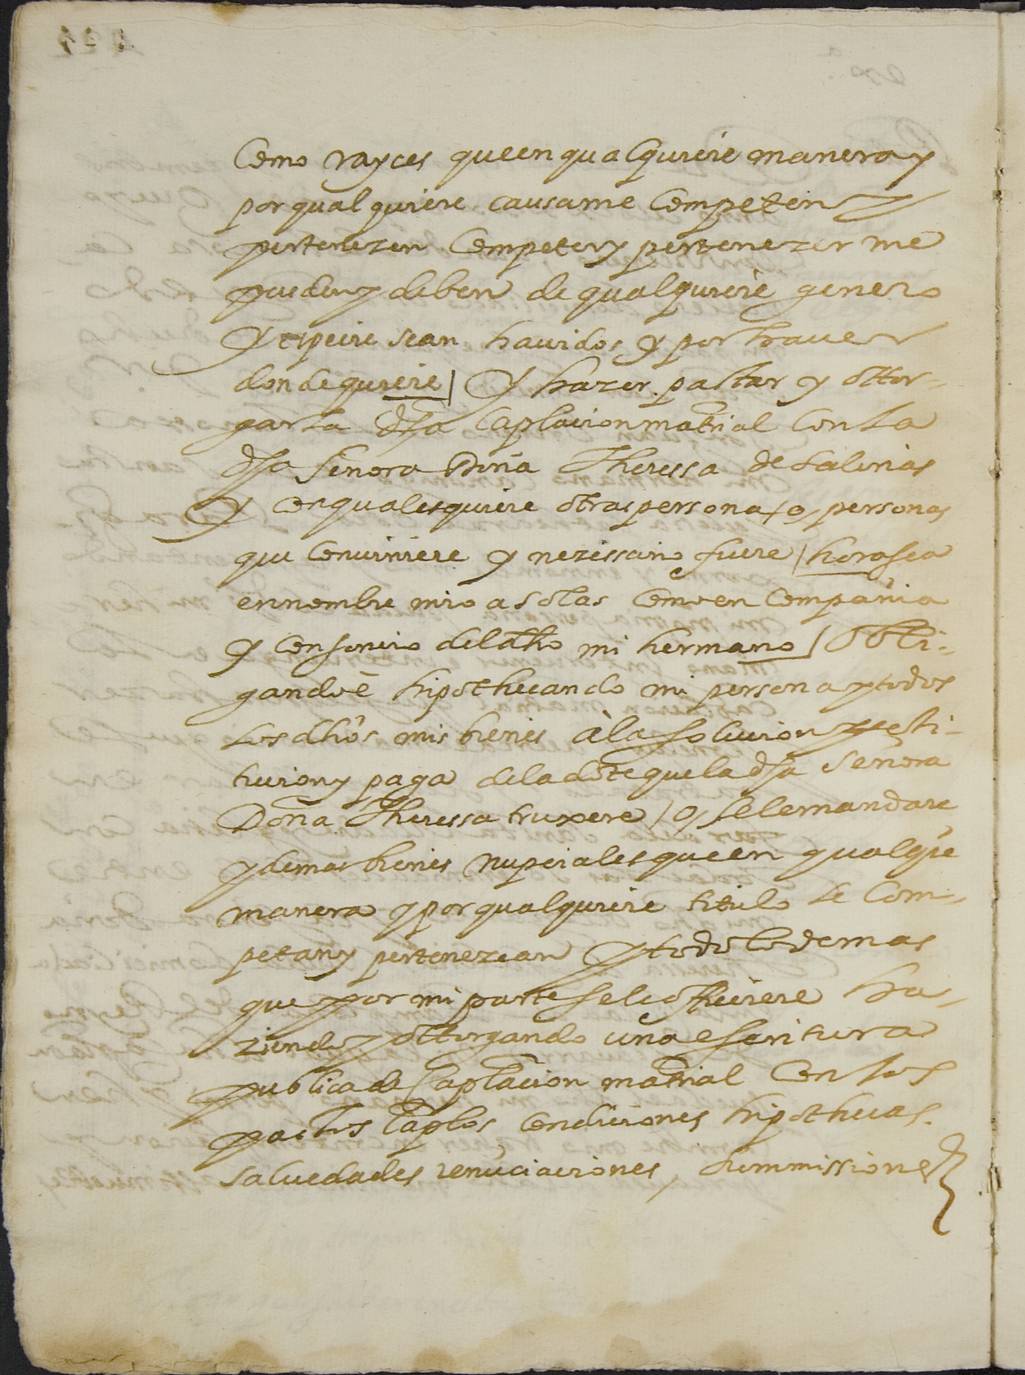 Como rayces que en qualquiere manera y
por qualquiere causa me Competen y
pertenezen Competer y pertenezer me
pueden y deben de qualquiere genero
Y especie sean hauidos y por hauer
don de quiere / Y hazer pactar y ottor-
gar La dha Caplacion matrial Con La
dha señora Doña Theressa de Salinas
Y Con qualesquiere otras persona / o, personas
que Conuiniere y nezessario fuere / hora sea
en nombre mio a solas Como en Compañia
y Consorcio del dho mi hermano / Obli-
gando è hipothecando mi persona y todos
Los dhos mis bienes à la solucion resti-
tucion y paga de la dote que la dha Señora
Doña Theressa truxere / o, se le mandare
y demas bienes nupciales que en qualqre
manera y por qualquiere titulo le Com-
petan y pertenezcan y todo lo demas
que por mi parte se le offreciere ha-
ziendo y ottorgando una escritura
publica de Caplacion matrial Con Los
pactos Caplos Condiciones hipothecas
saluedades renunciaciones, summissiones